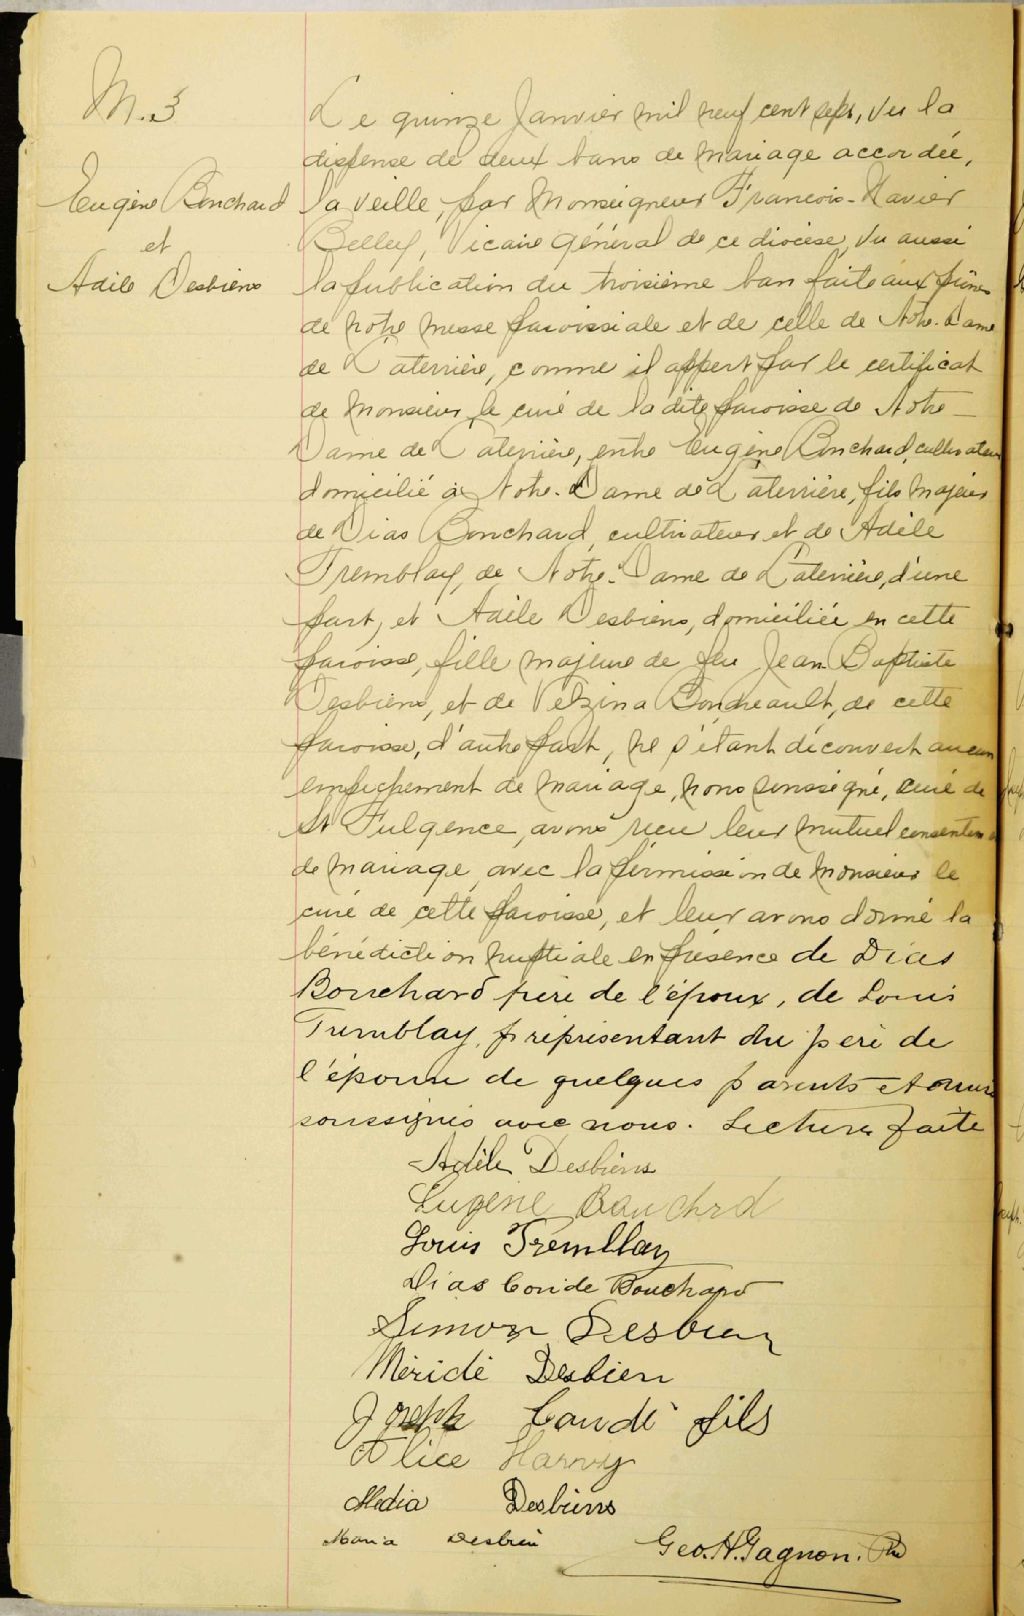 M. 3
Eugène Bouchard
et
Adèle Desbiens
Le quinze Janvier mil neuf cent sept, vu la
dispense de deux bans de mariage accordée,
la veille, par Monseigneur François-Xavier
Belley, Vicaire général de ce diocèse, vu aussi
la publication du troisième ban faite aux prônes
de notre messe paroissiale et de celle de Notre-Dame
de Laterrière, comme il appert par le certificat
de Monsieur le curé de la dite paroisse de Notre-
Dame de Laterrière, entre Eugène Bouchard, cultivateur
domicilié à Notre-Dame de Laterrière, fils majeur
de Dias Bouchard, cultivateur et de Adèle
Tremblay, de Notre-Dame de Laterrière, d'une
part, et Adèle Desbiens, domiciliée en cette
paroisse, fille majeure de feu Jean Baptiste
Desbiens, et de Velzina Boudreault, de cette
paroisse, d'autre part, ne s'étant découvert aucun
empêchement de mariage, nous soussigné, curé de
St Fulgence, avons reçu leur mutuel
de mariage, avec la permission de Monsieur le
curé de cette paroisse, et leur avons donné la
bénédiction nuptiale en présence de Dias
Bouchard père de l'époux, de Louis
Tremblay, représentant du père de
l'épouse de quelques parents et amis
soussignés avec nous. Lecture faite
Adèle Desbiens
Eugène Bauchrd
Louis Tremblay
Dias Bouchard
Simon Desbien
Méridé Desbien
Joseph fils
Alice Harvy
Média Desbiens
Maria Desbien
Geo. H. Gagnon. Ptre